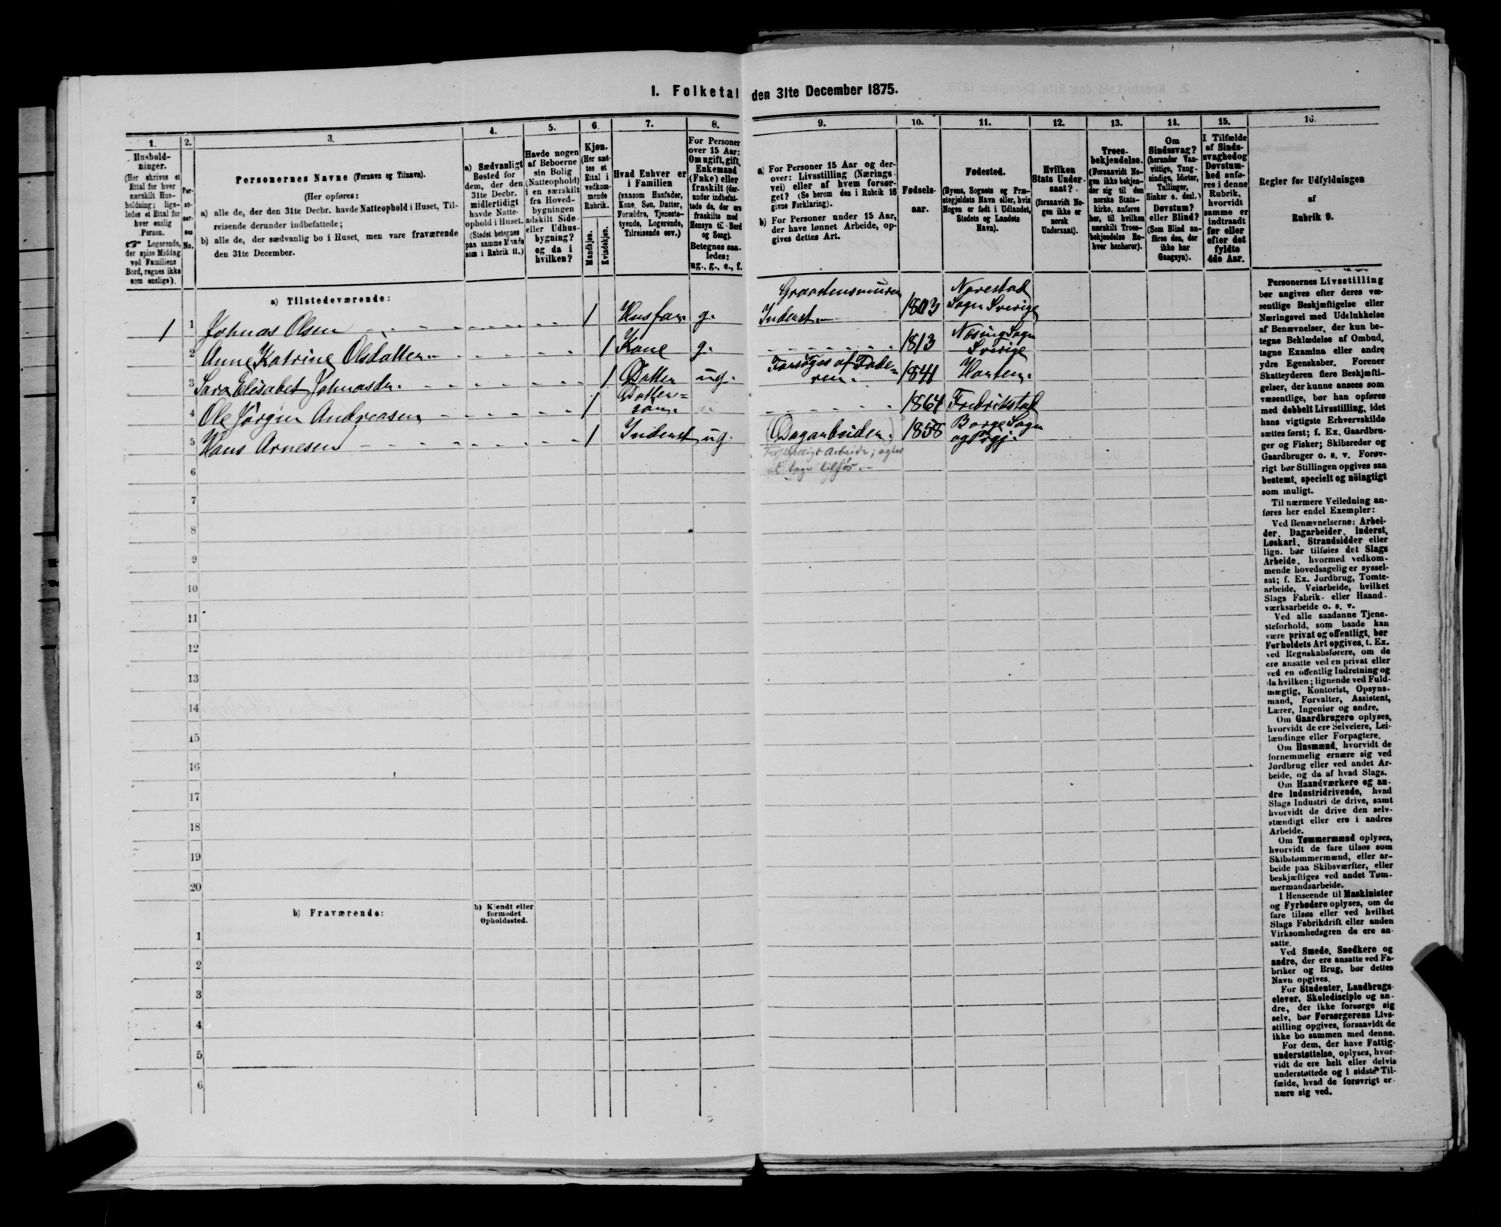 1. Folketal den 31te December 1875.
1.
2.
3.
4.
5.
6.
7.
8.
9.
10.
11.
12.
13.
14.
15.
16.
Hushold-
ninger.
(Her skrives et
Ettal for hver
særskilt Hus-
holdning; lige-
ledes et Ettal for
hver enslig
Person.
☞ Logerende,
der spise Middag
ved Familiens
Bord, regnes ikke
som enslige).
Per-
No.
Personernes Navne (Fornavn og Tilnavn).
(Her opføres:
a) alle de, der den 31te Decbr. havde Natteophold i Huset, Til-
reisende derunder indbefattede;
b) alle de, der sædvanlig bo i Huset, men vare fraværende
den 31te December.
a) Sædvanligt
Bosted for
dem, der den
31te Decbr.
midlertidigt
havde Natte-
ophold i Huset.
(Stedet betegnes
paa samme Maade
som i Rubrik 11.)
Havde nogen
af Beboerne
sin Bolig
(Natteophold)
i en særskilt
fra Hoved-
bygningen
adskilt Side-
eller Udhus-
bygning?
og da i
hvilken?
Kjøn.
(Her sæt-
tes et
Ettal i
vedkom-
mende
Rubrik.
Mandkjøn.
Kvindekjøn.
Hvad Enhver er
i Familien
(saasom Husfader,
Kone, Søn, Datter,
Forældre, Tjeneste-
tyende, Logerende,
Tilreisende osv.)
For Personer
over 15 Aar:
Om ugift, gift,
Enkemand
(Enke) eller
fraskilt (der-
under indbefat-
tede de, der ere
fraskilte med
Hensyn til Bord
og Seng).
Betegnes saa-
ledes:
ug., g., e., f.
a) For Personer 15 Aar og der-
over: Livsstilling (Nærings-
vei) eller af hvem forsør-
get? (Se herom den i Rubrik 16
givne Forklaring).
b) For Personer under 15 Aar,
der have lønnet Arbeide, op-
gives dettes Art.
Fødsels-
aar.
Fødested.
(Byens, Sognets og Præ-
stegjeldets Navn eller, hvis
Nogen er født i Udlandet,
Stedets og Landets
Navn).
Hvilken
Stats Under-
saat?
(forsaavidt No-
gen ikke er
norsk
Undersaat).
Troes-
bekjendelse.
(Forsaavidt No-
gen ikke bekjen-
der sig til den
norske Stats-
kirke, anføres
her, til hvilken
særskilt Troes-
bekjendelse En-
hver henhører).
Om
Sindssvag?
(herunder Van-
vittige, Tung-
sindige, Idioter,
Tullinger,
Sinker o. desl.)
Døvstum?
eller Blind?
(Som Blind an-
føres den, der
ikke har
Gangsyn).
I Tilfælde
af Sinds-
svaghed og
Døvstum-
hed anfø-
res i denne
Rubrik,
hvorvidt
samme er
indtraadt
før eller
efter det
fyldte
4de Aar.
Regler for Udfyldningen
af
Rubrik 9.
a) Tilstedeværende:
1 1 Johnas Olsen 1 Husfar g. Graastensmurer Inderst 1803 Naverstad Sogn Sverige
2 Anne Katrine Olsdatter 1 Kone g. 1813 Næsing Sogn Sverige
3 Sara Elisabet Johnasdr. 1 Datter ug. Forsørges af Faderen 1841 Horten.
4 Ole Jørgen Andreasen 1 Dattersøn " 1864 Fredrikstad
5 Hans Arnesen 1 Inderst ug. (Dagarbeider) 1858 Borge Sogn og Prgj.
Arbeide; agter
at tage tilsjøs.
6
7
8
9
10
11
12
13
14
15
16
17
18
19
20
b) Fraværende:
b) Kjendt eller
formodet
Opholdssted.
1
2
3
4
5
6
Personernes Livsstilling
bør angives efter deres væ-
sentlige Beskjæftigelse eller
Næringsvei med Udelukkelse
af Benævnelser, der kun be-
tegne Beklædelse af Ombud,
tagne Examina eller andre
ydre Egenskaber. Forener
Skatteyderen flere Beskjæfti-
gelser, der kunne ansees som
væsentlige, bør han opføres
med dobbelt Livsstilling, idet
hans vigtigste Erhvervskilde
sættes først; f. Ex. Gaardbru-
ger og Fisker; Skibsreder og
Gaardbruger o. s. v. Forøv-
rigt bør Stillingen opgives saa
bestemt, specielt og nøiagtigt
som muligt.
Til nærmere Veiledning an-
føres her endel Exempler:
Ved Benævnelserne: Arbei-
der, Dagarbeider, Inderst,
Løskarl, Strandsidder eller
lign. bør tilføies det Slags
Arbeide, hvormed vedkom-
mende hovedsagelig er syssel-
sat; f. Ex. Jordbrug, Tomte-
arbeide, Veiarbeide, hvilket
Slags Fabrik- eller Haand-
værksarbeide o. s. v.
Ved alle saadanne Tjene-
steforhold, som baade kan
være privat og offentligt, bør
Forholdets Art opgives, t. Ex.
ved Regnskabsførere, om de
ere ansatte ved en privat eller
ved en offentlig Indretning og
da hvilken; lignende ved Fuld-
mægtig, Kontorist, Opsyns-
mand, Forvalter, Assistent,
Lærer, Ingeniør og andre.
Om Gaardbrugere oplyses,
hvorvidt de ere Selveiere, Lei-
lændinge eller Forpagtere.
Om Husmænd, hvorvidt de
fornemmelig ernære sig ved
Jordbrug eller ved andet Ar-
beide, og da af hvad Slags.
Om Haandværkere og an-
dre Industridrivende, hvad
Slags Industri de drive, samt
hvorvidt de drive den selv-
stændigt eller ere i andres
Arbeide.
Om Tømmermænd oplyses,
hvorvidt de fare tilsøs som
Skibstømmermænd, eller ar-
beide paa Skibsværfter, eller
beskjæftiges ved andet Tøm-
mermandsarbeide.
I Henseende til Maskinister
og Fyrbødere oplyses, om de
fare tilsøs eller ved hvilket
Slags Fabrikdrift eller anden
Virksomhedsgren de ere an-
satte.
Ved Smede, Snedkere og
andre, der ere ansatte ved Fa-
briker og Brug, bør dettes
Navn opgives.
For Studenter, Landbrugs-
elever, Skoledisciple og an-
dre, der ikke forsørge sig
selv, bør Forsørgerens Livs-
stilling opgives, forsaavidt de
ikke bo sammen med denne.
For dem, der have Fattig-
understøttelse, oplyses, hvor-
vidt de ere helt eller delvis
understøttede og i sidste Til-
fælde, hvad de forøvrigt er-
nære sig ved.